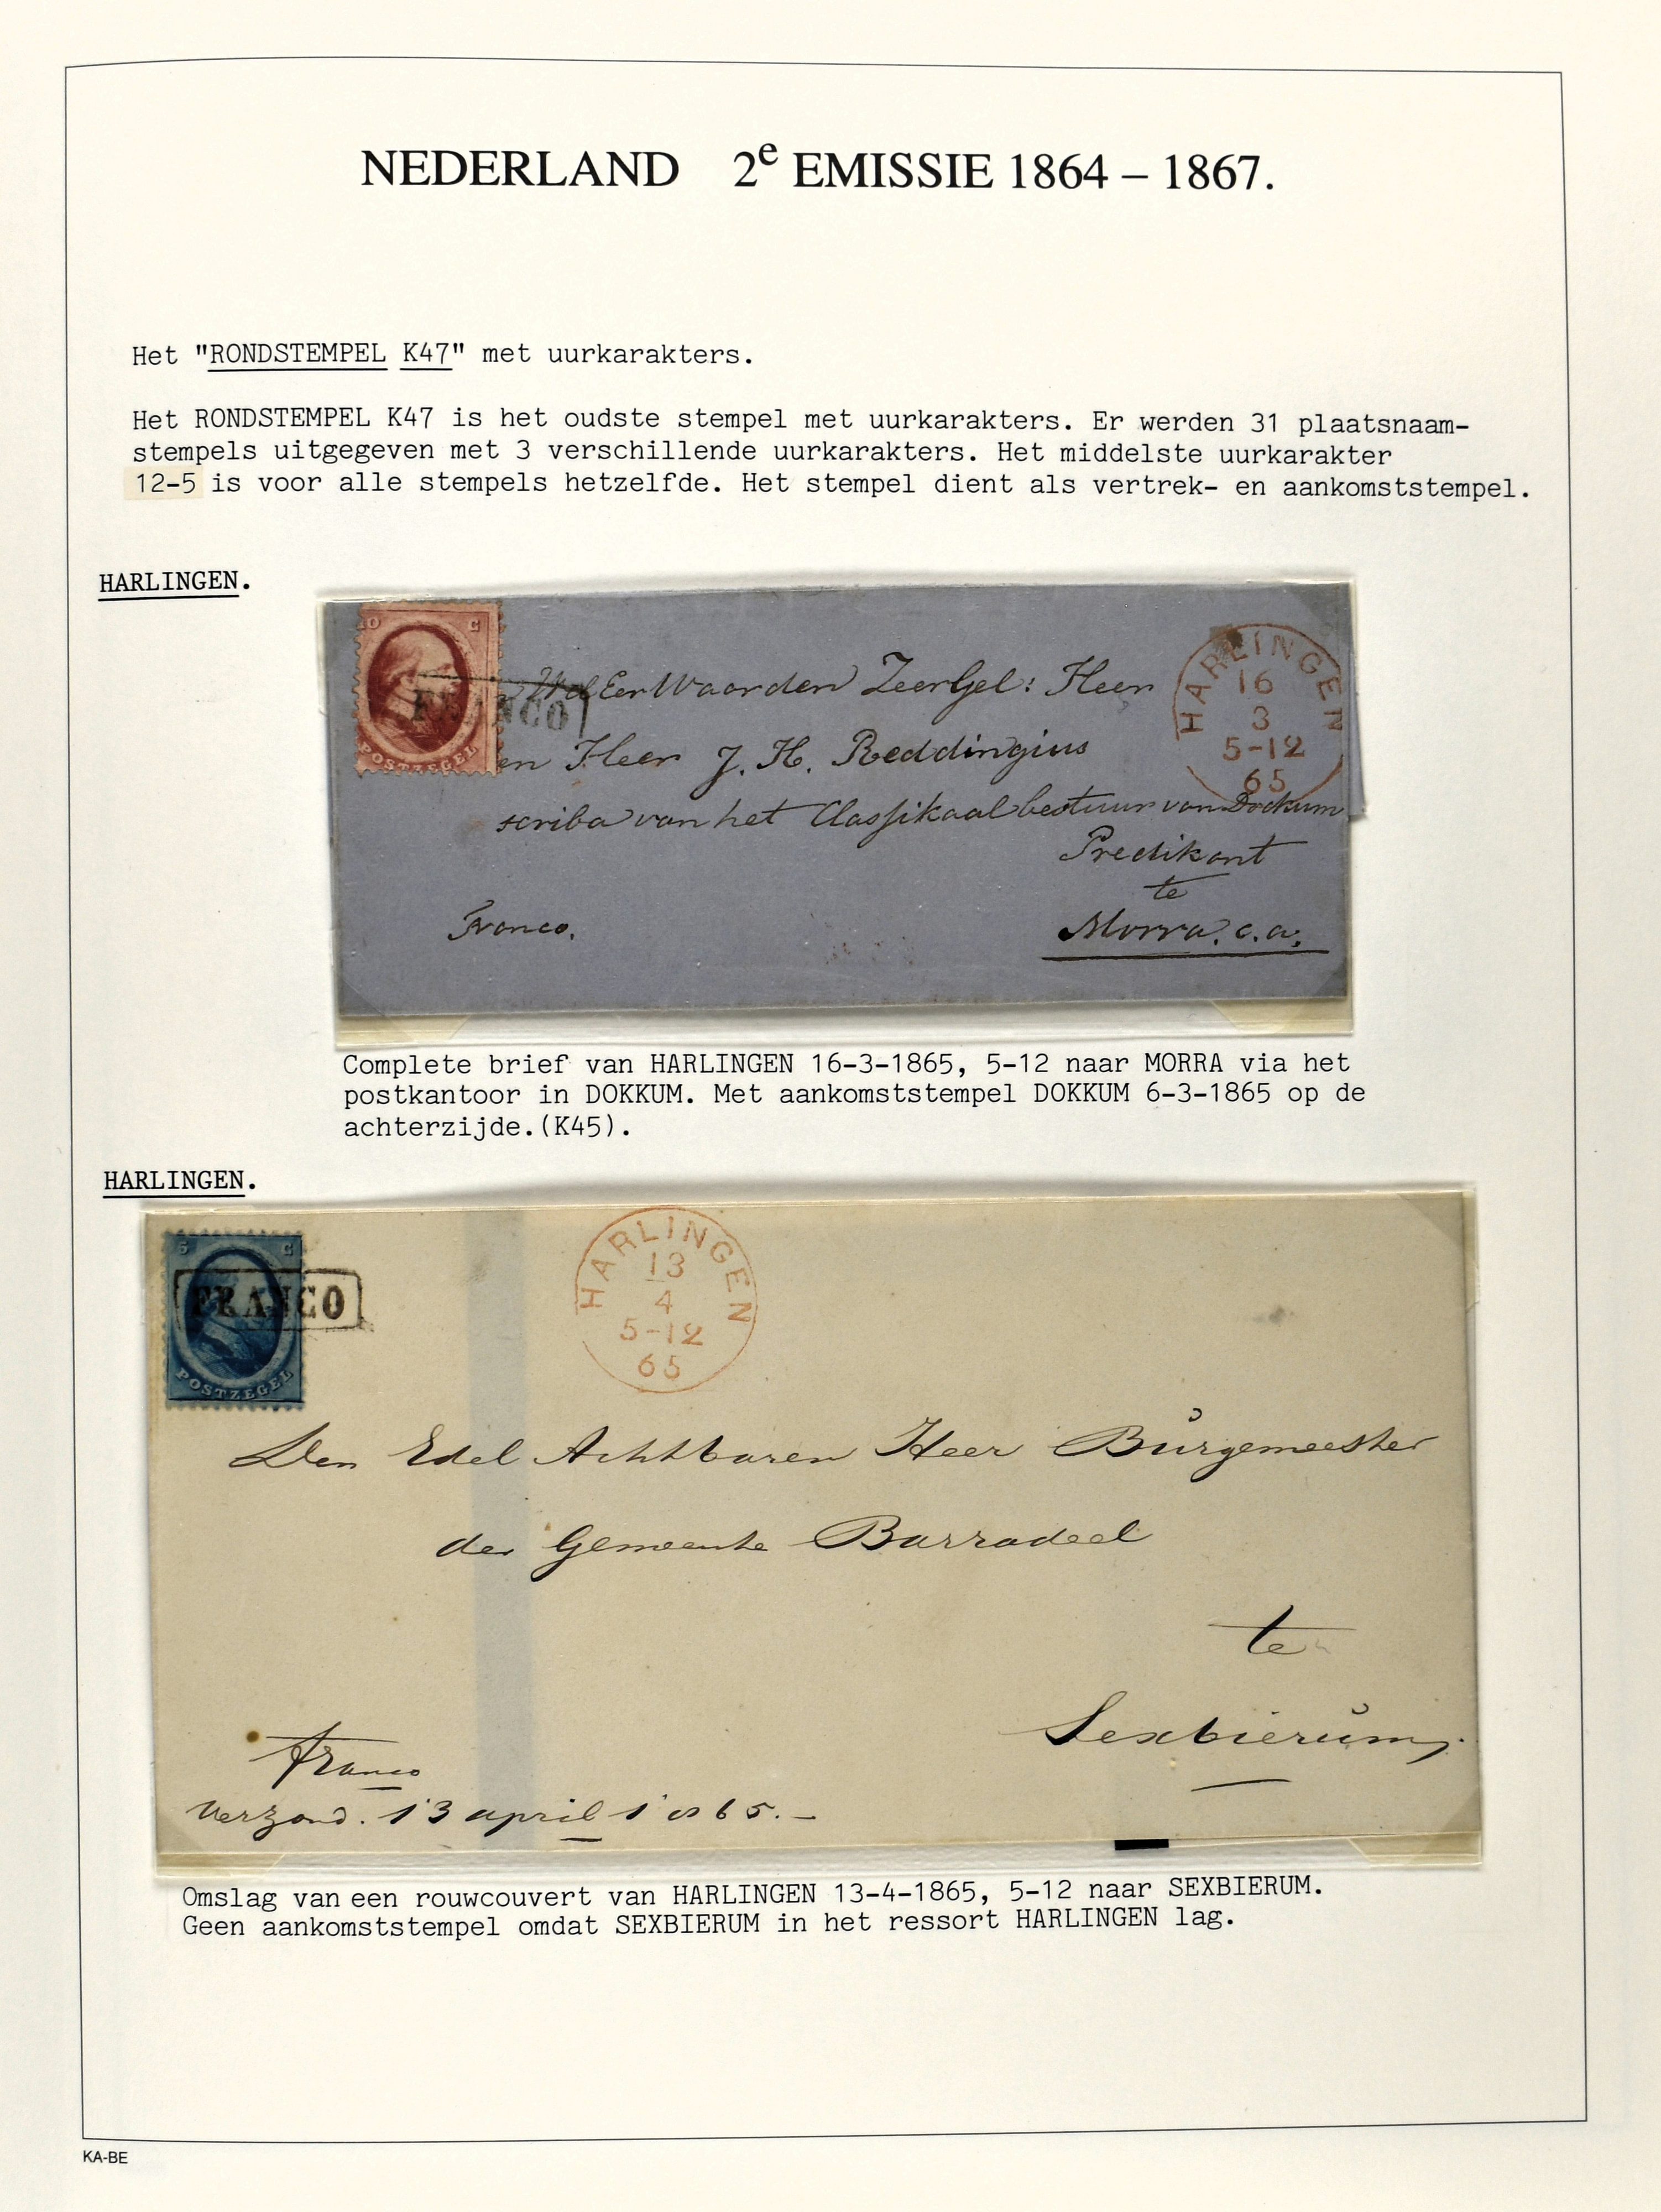 NEDERLAND 2e EMISSIE 1864 – 1867.
Het "RONDSTEMPEL K47" met uurkarakters.
Het RONDSTEMPEL K47 is het oudste stempel met uurkarakters. Er werden 31 plaatsnaam-
stempels uitgegeven met 3 verschillende uurkarakters. Het middelste uurkarakter
12-5 is voor alle stempels hetzelfde. Het stempel dient als vertrek- en aankomststempel.
HARLINGEN.
10 C
POSTZEGEL
FRANCO
HARLINGEN
16
3
5-12
65
WelEerWaarden ZeerGel: Heer
en Heer J. H. Reddingius
scriba van het Classikaal bestuur van Dockum
Predikant
te
Morra. c.a.
Franco.
Complete brief van HARLINGEN 16-3-1865, 5-12 naar MORRA via het
postkantoor in DOKKUM. Met aankomststempel DOKKUM 6-3-1865 op de
achterzijde.(K45).
HARLINGEN.
5 C
POSTZEGEL
FRANCO
HARLINGEN
13
4
5-12
65
Den Edel Achtbaren Heer Burgemeester
der Gemeente Barradeel
te
Sexbierum.
Franco
Verzond. 13 april 1865.-
Omslag van een rouwcouvert van HARLINGEN 13-4-1865, 5-12 naar SEXBIERUM.
Geen aankomststempel omdat SEXBIERUM in het ressort HARLINGEN lag.
KA-BE